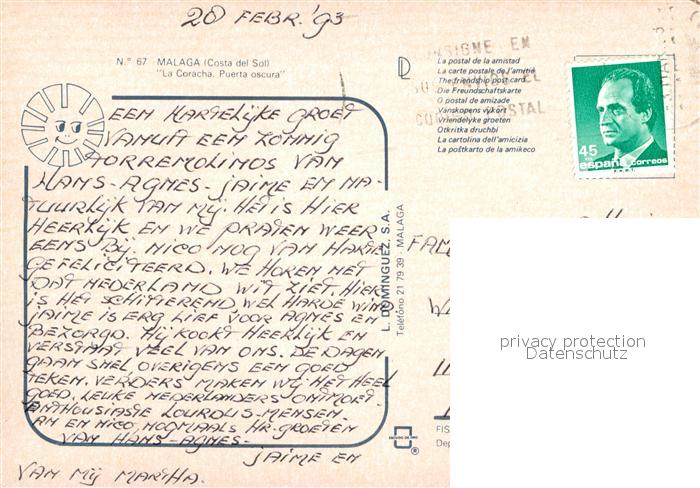 28 FEBR. '93
N.º 67 - MALAGA (Costa del Sol)
"La Coracha. Puerta oscura"
EEN HARTELIJKE GROET
VANUIT EEN ZONNIG
TORREMOLINOS VAN
HANS-AGNES-JAIME EN NA-
TUURLIJK VAN MIJ. HET IS HIER
HEERLIJK EN WE PRATEN WEER
EENS BIJ. NICO NOG VAN HARTE
GEFELICITEERD. WE HOREN NET
DAT NEDERLAND WIT ZIET. HIER
IS HET SCHITTEREND, WEL HARDE WIND
JAIME IS ERG LIEF VOOR AGNES EN
BEZORGD. HIJ KOOKT HEERLIJK EN
VERSTAAT VEEL VAN ONS. DE DAGEN
GAAN SNEL OVERIGENS EEN GOED
TEKEN. VERDERS MAKEN WIJ HET HEEL
GOED. LEUKE NEDERLANDERS ONTMOET.
ENTHOUSIASTE LOURDUS-MENSEN.
AN EN NICO, NOGMAALS HR. GROETEN
VAN HANS-AGNES-
JAIME EN
VAN MIJ MARTHA.
L. DOMINGUEZ, S.A.
Teléfono 21 79 39 - MALAGA
La postal de la amistad
La carte postale de l'amitié
The friendship post card
Die Freundschaftskarte
O postal de amizade
Vänskapens vykort
Vriendelyke groeten
Otkritka druchbi
La cartolina dell'amicizia
La poŝtkarto de la amikeco
CONSIGNE EN
POSTAL
45
españa correos
FAM
privacy protection
Datenschutz
FIS
Dep